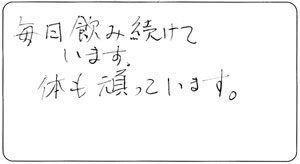 毎日飲み続けて
います.
体も頑っています。